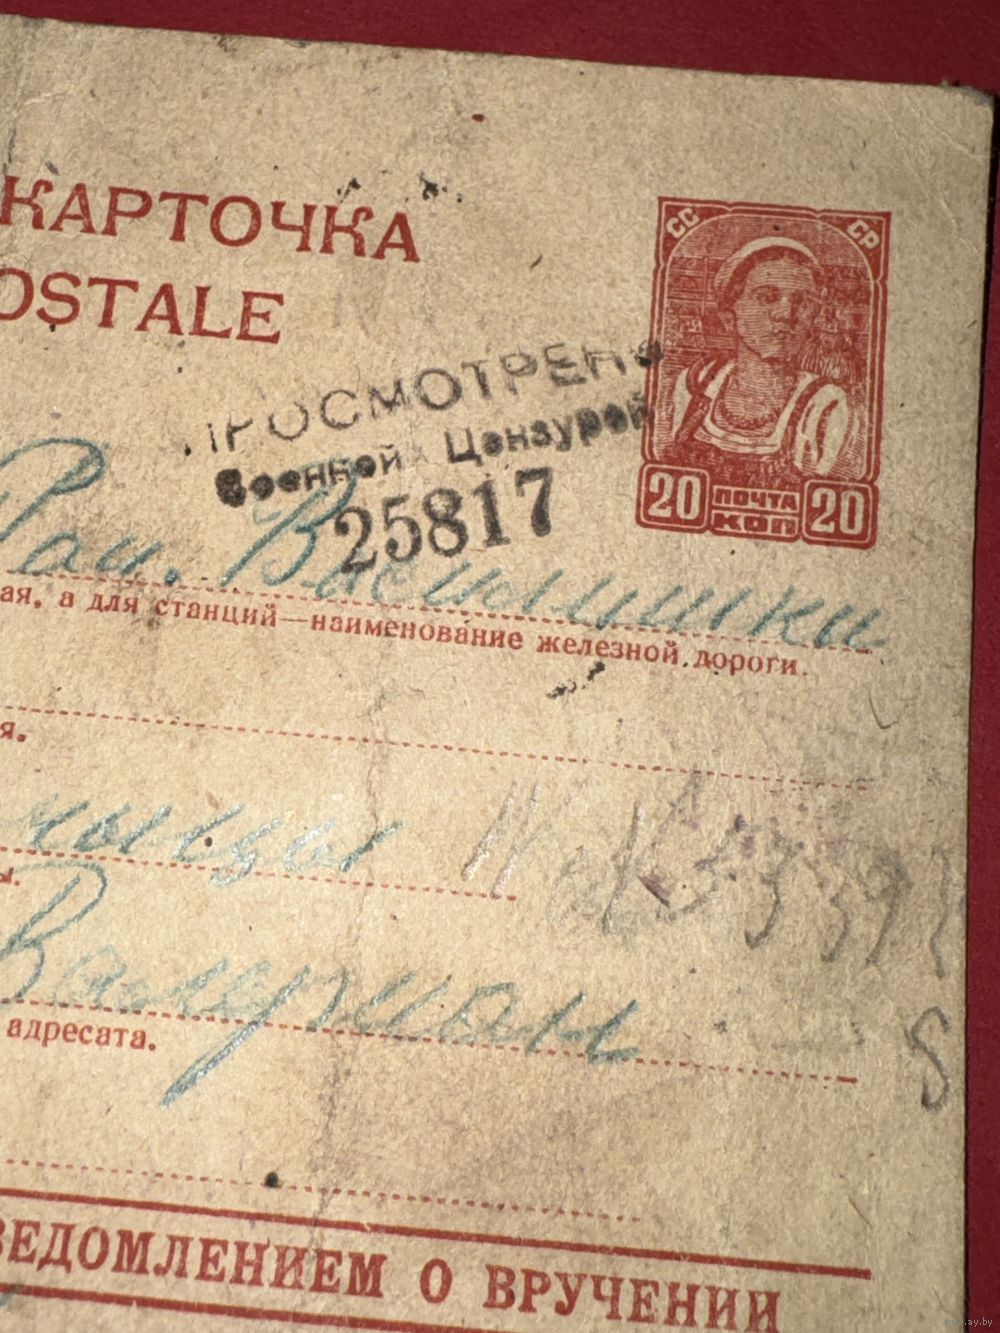 КАРТОЧКА
OSTALE
СС СР
ПРОСМОТРЕНО
Военной Цензурой
25817
20 ПОЧТА КОП 20
Рай. Васишки
ая, а для станций—наименование железной дороги.
я.
ы.
Валериан
адресата.
ВЕДОМЛЕНИЕМ О ВРУЧЕНИИ
www.ay.by